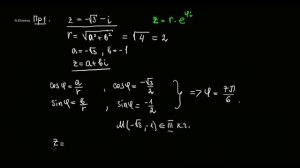 Пр1. z = -√3 - i
z = r · e^φi
r = √a² + b² = √4 = 2
a = -√3, b = -1
z = a + bi
cosφ = a/r, cosφ = -√3/2
sinφ = b/r, sinφ = -1/2
=> φ = 7π/6.
M(-√3, -1) ∈ III к.г.
z =